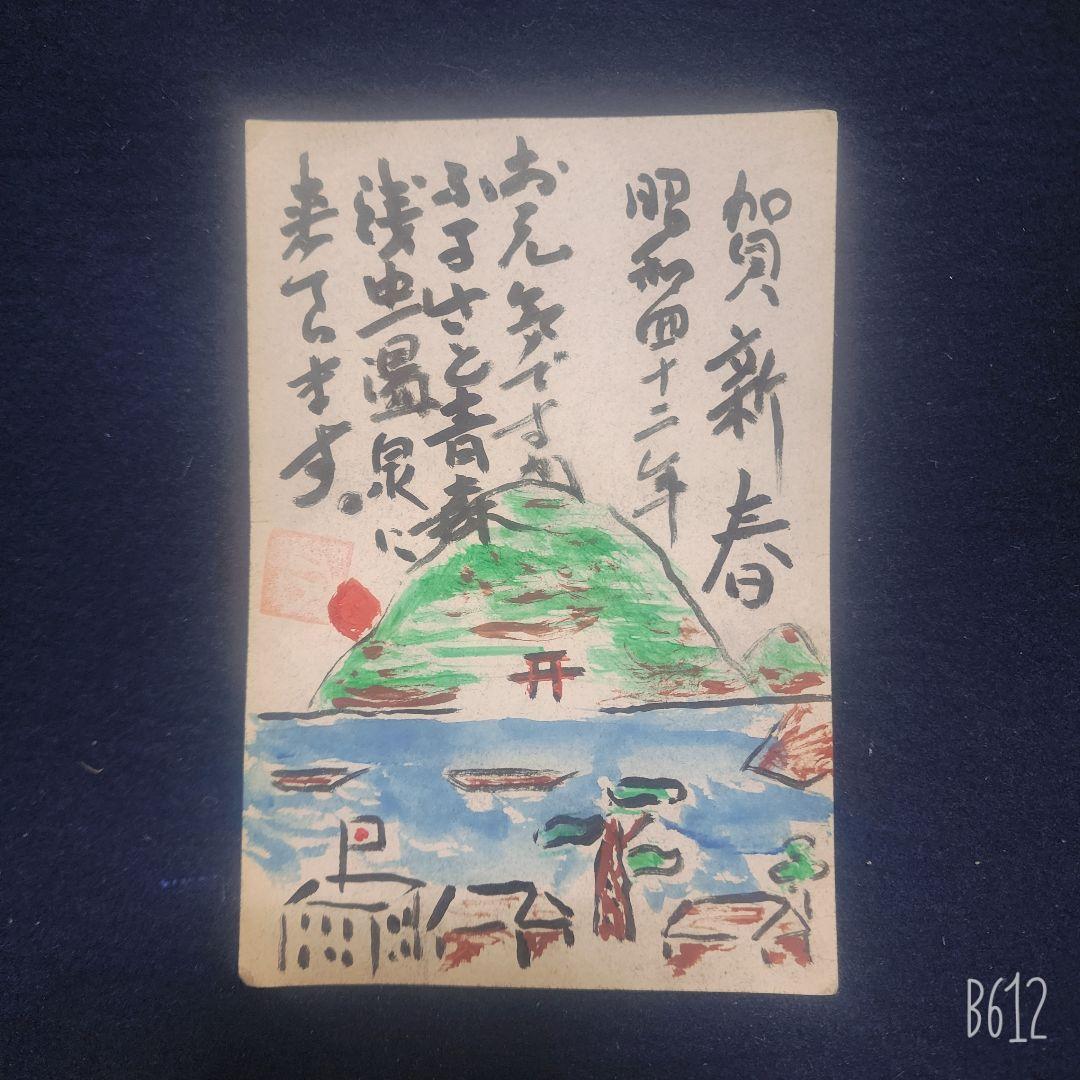 賀新春
昭和四十二年
お元気ですか
ふるさと青森
浅虫温泉に
来てます。
B612